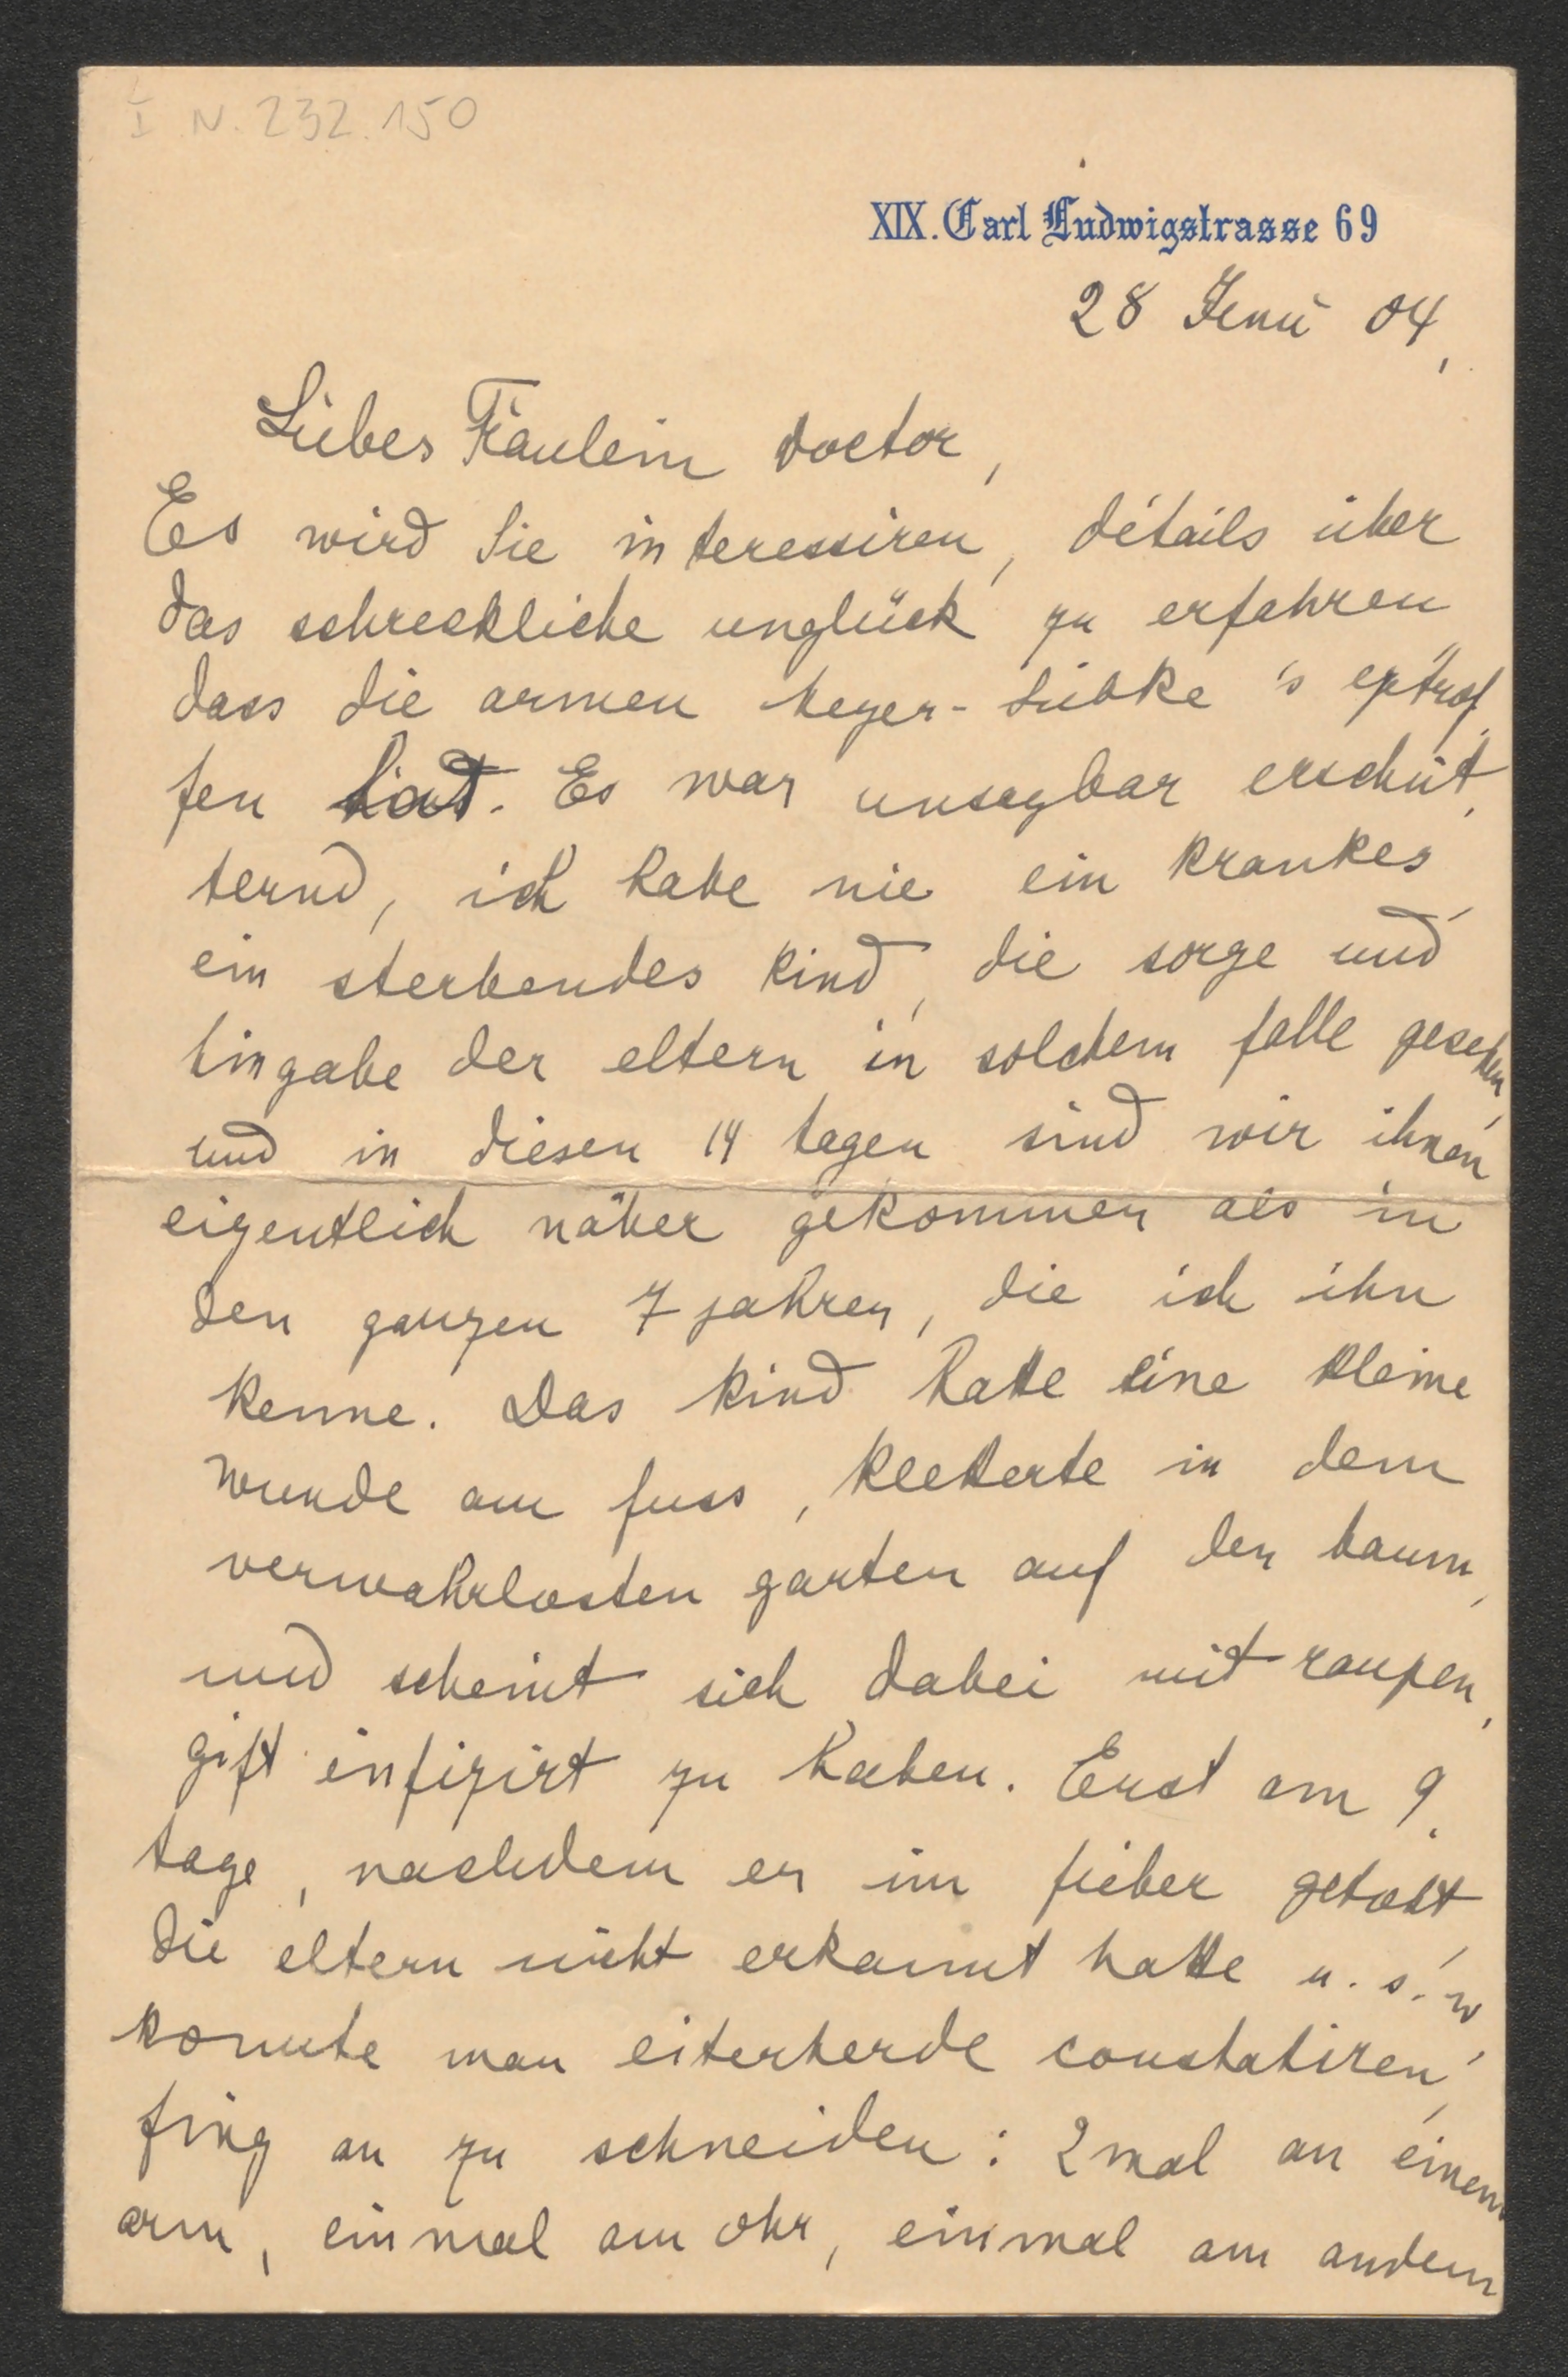 I. N. 232.150
XIX. Carl Ludwigstrasse 69
28 Juni 04,
Liebes Fräulein doctor,
Es wird Sie interessiren, détails über
das schreckliche unglück zu erfahren
dass die armen Meyer-Lübke's
fen hat. Es war unsagbar erschüt-
ternd, ich habe nie ein krankes,
ein sterbendes kind, die sorge und
hingabe der eltern in solchem falle gesehen,
und in diesen 14 tagen sind wir ihnen
eigentlich näher gekommen als in
den ganzen 7 jahren, die ich ihn
kenne. Das kind hatte eine kleine
wunde am fuss, kletterte in dem
verwahrlosten garten auf den baum,
und scheint sich dabei mit raupen-
gift infizirt zu haben. Erst am 9.
tage, nachdem er im fieber getobt
die eltern nicht erkannt hatte u. s. w.
konnte man eiterherde constatiren,
fing an zu schneiden: 2 mal an einem
arm, einmal am ohr, einmal am andern